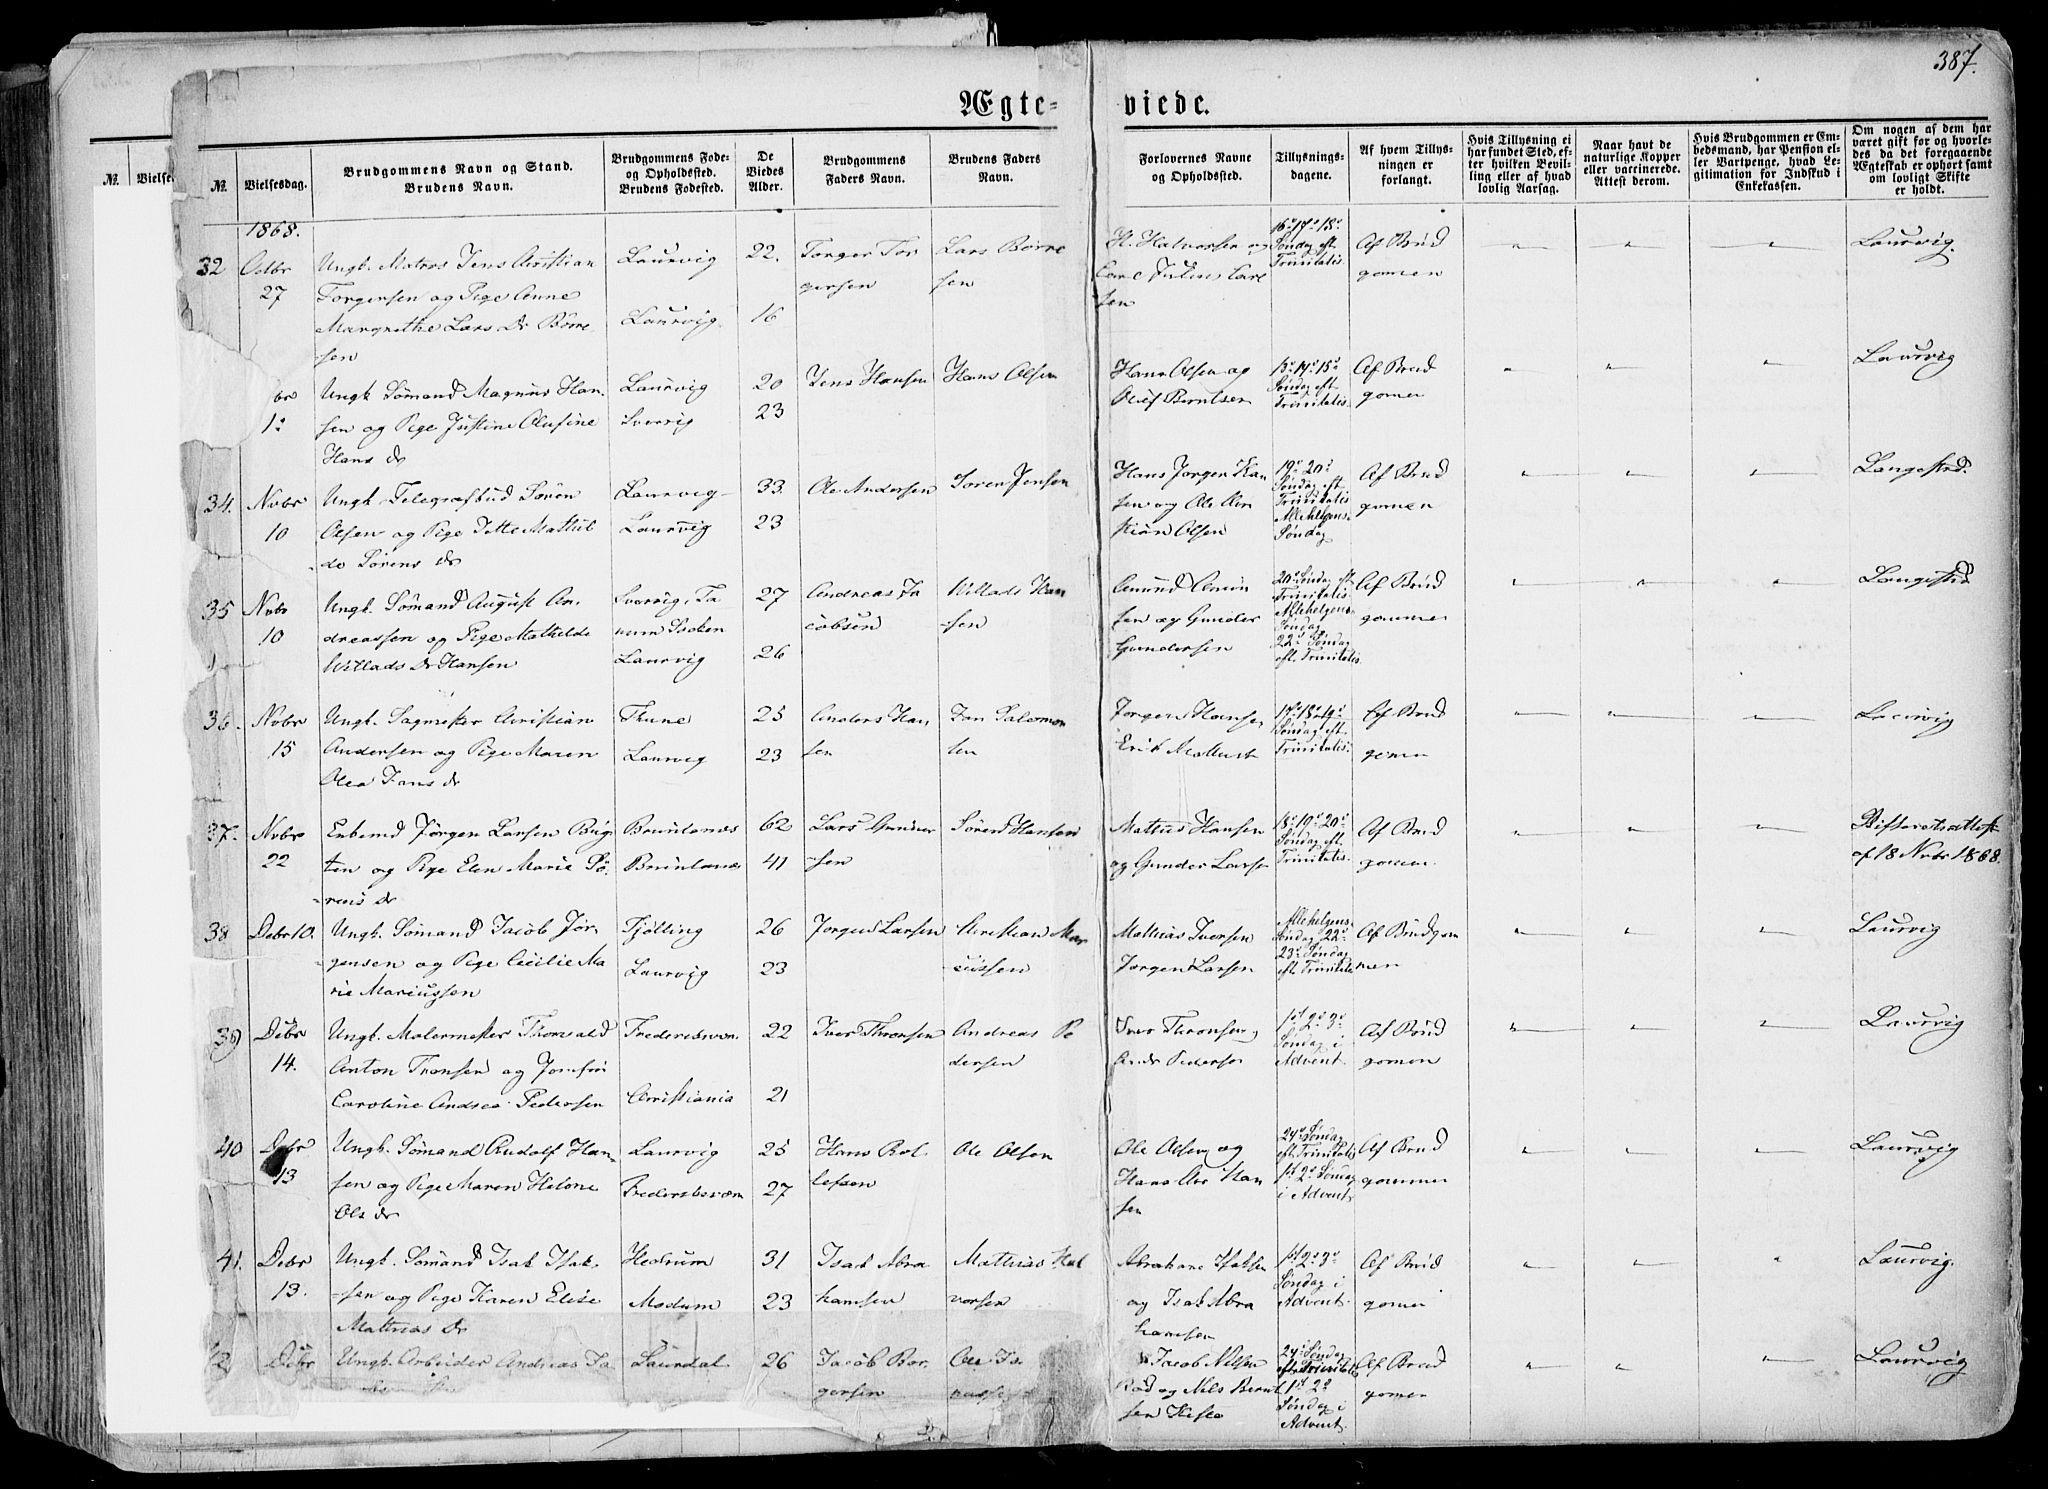 387.
Ægte-
viede.
№.
Vielses
№.
Vielsesdag.
Brudgommens Navn og Stand.
Brudens Navn.
Brudgommens Føde-
og Opholdssted.
Brudens Fødested.
De
Viedes
Alder.
Brudgommens
Faders Navn.
Brudens Faders
Navn.
Forlovernes Navne
og Opholdssted.
Tillysnings-
dagene.
Af hvem Tillys-
ningen er
forlangt.
Hvis Tillysning ei
har fundet Sted, ef-
ter hvilken Bevil-
ling eller af hvad
lovlig Aarsag.
Naar havt de
naturlige Kopper
eller vaccinerede.
Attest derom.
Hvis Brudgommen er Em-
bedsmand, har Pension el-
ler Vartpenge, hvad Le-
gitimation for Indskud i
Enkekassen.
Om nogen af dem har
været gift før og hvorle-
des da det foregaaende
Ægteskab er ophørt samt
om lovligt Skifte
er holdt.
1868.
32
Octbr
27
Ungk. Matros Jens Christian
Torgersen og Pige Anne
Margrethe Lars Dr Börre
sen
Laurvig
Laurvig
22.
16
Torger Tor
gersen
Lars Börre
sen
H. Halvorsen og
Carl Julius Carl
sen
16de 17de 18de
Søndag eft.
Trinitatis
Af Brud
gomen
Laurvig.
br
1ste
Ungk Sömand Magnus Han
sen og Pige Justine Olufine
Hans dr
Laurvig
Sverrig
20
23
Jens Hansen
Hans Olsen
Hans Olsen og
Oluf Berntsen
Søndag eft.
Trinitatis
Af Brud
gomen
Laurvig
34.
Novbr
10
Ungk. Telegrafbud Sören
Olsen og Pige Jette Mathil
de Sörens dr
Laurvig
Laurvig
33.
23
Ole Andersen
Sören Jensen
Hans Jørgen Han
sen og Ole Kri
stian Olsen
19de 20de
Søndag eft
Trinitatis
Allehelgens
Søndag
Af Brud
gomen
Langestrd.
35
Novbr
10
Ungk. Sömand August An
dreassen og Pige Mathilde
Willads Dr Hansen
Sverrig, Ta
num Socken
Laurvig
27
26
Andreas Ja
cobsen
Willads Han
sen
Amund Amun
sen og Gunder
Gundersen
20de Søndag eft
Trinitatis
Allehelgens
Søndag
22de Søndag
eft. Trinitatis
Af Brud
gommen
Langestrd
36.
Novbr
15
Ungk. Sagmester Christian
Andersen og Pige Maren
Olea Jans dr
Thune
Laurvig
25
23
Anders Han
sen
Jan Salomon
sen
Jørgen Hansen
17de 18de 19de
Søndag eft
Trinitatis
Af Brud
gomen
Laurvig
37.
Novbr
22
Enkemd Jørgen Larsen Bug
ten og Pige Elen Marie Sö
rens dr
Brunlanæs
Brunlanæs
62
41
Lars Gunder
sen
Sören Hansen
Mathis Hansen
og Gunder Larsen
18de 19de 20de
Søndag eft
Trinitatis
Af Brud
gomen
Skifteretsattest
af 18 Novbr 1868.
38
Debr 10.
Ungk. Sömand Jacob Jör
gensen og Pige Cecilie Ma
rie Mariussen
Tjølling
Laurvig
26
23
Jørgen Larsen
Christian Mar
cussen
Mathias Iversen
Jørgen Larsen
Allehelgens
Søndag 22de
23de Søndag
eft. Trinitatis
Af Brudgom
men
Laurvig
39
Debr
14.
Ungk. Malermester Thorvald
Anton Tronsen og Jomfru
Caroline Andrea Pedersen
Frederiksværn
Christiania
22
21
Iver Thronsen
Andreas Pe
dersen
Iver Thronsen
Andr Pedersen
1st 2de 3de
Søndag i
Advent
Af Brud
gomen
Laurvig
40
Debr
13
Ungk. Sömand Rudolf Han
sen og Pige Maren Helene
Ols dr
Laurvig
Frederiksværn
25
27
Hans Rol
lefsen
Ole Olsen
Ole Olsen og
Hans Han
sen
24de Søndag
eft. Trinitatis
1st 2de Søndag
i Advent
Af Brud
gommen
Laurvig
41.
Debr
13.
Ungk. Sömand Isak Isak
sen og Pige Karen Elise
Mathias Dr
Hedrum
Modum
31
23
Isak Abra
hamsen
Mathias Hal
vorsen
Abraham Isaksen
og Isak Abra
hamsen
1st 2de 3de
Søndag i
Advent
Af Brud
gomen
Laurvig.
2
Debr
Ungk. Arbeider Andreas Ja
Saurdal
26
Jacob Bor
gersen
Ole
Jacob Nilsen
Rød og Nils Bernt
sen
24de Søndag
eft Trinitatis
1st 2de
Søndag i
Advent
Af Brud
gomen
Laurvig